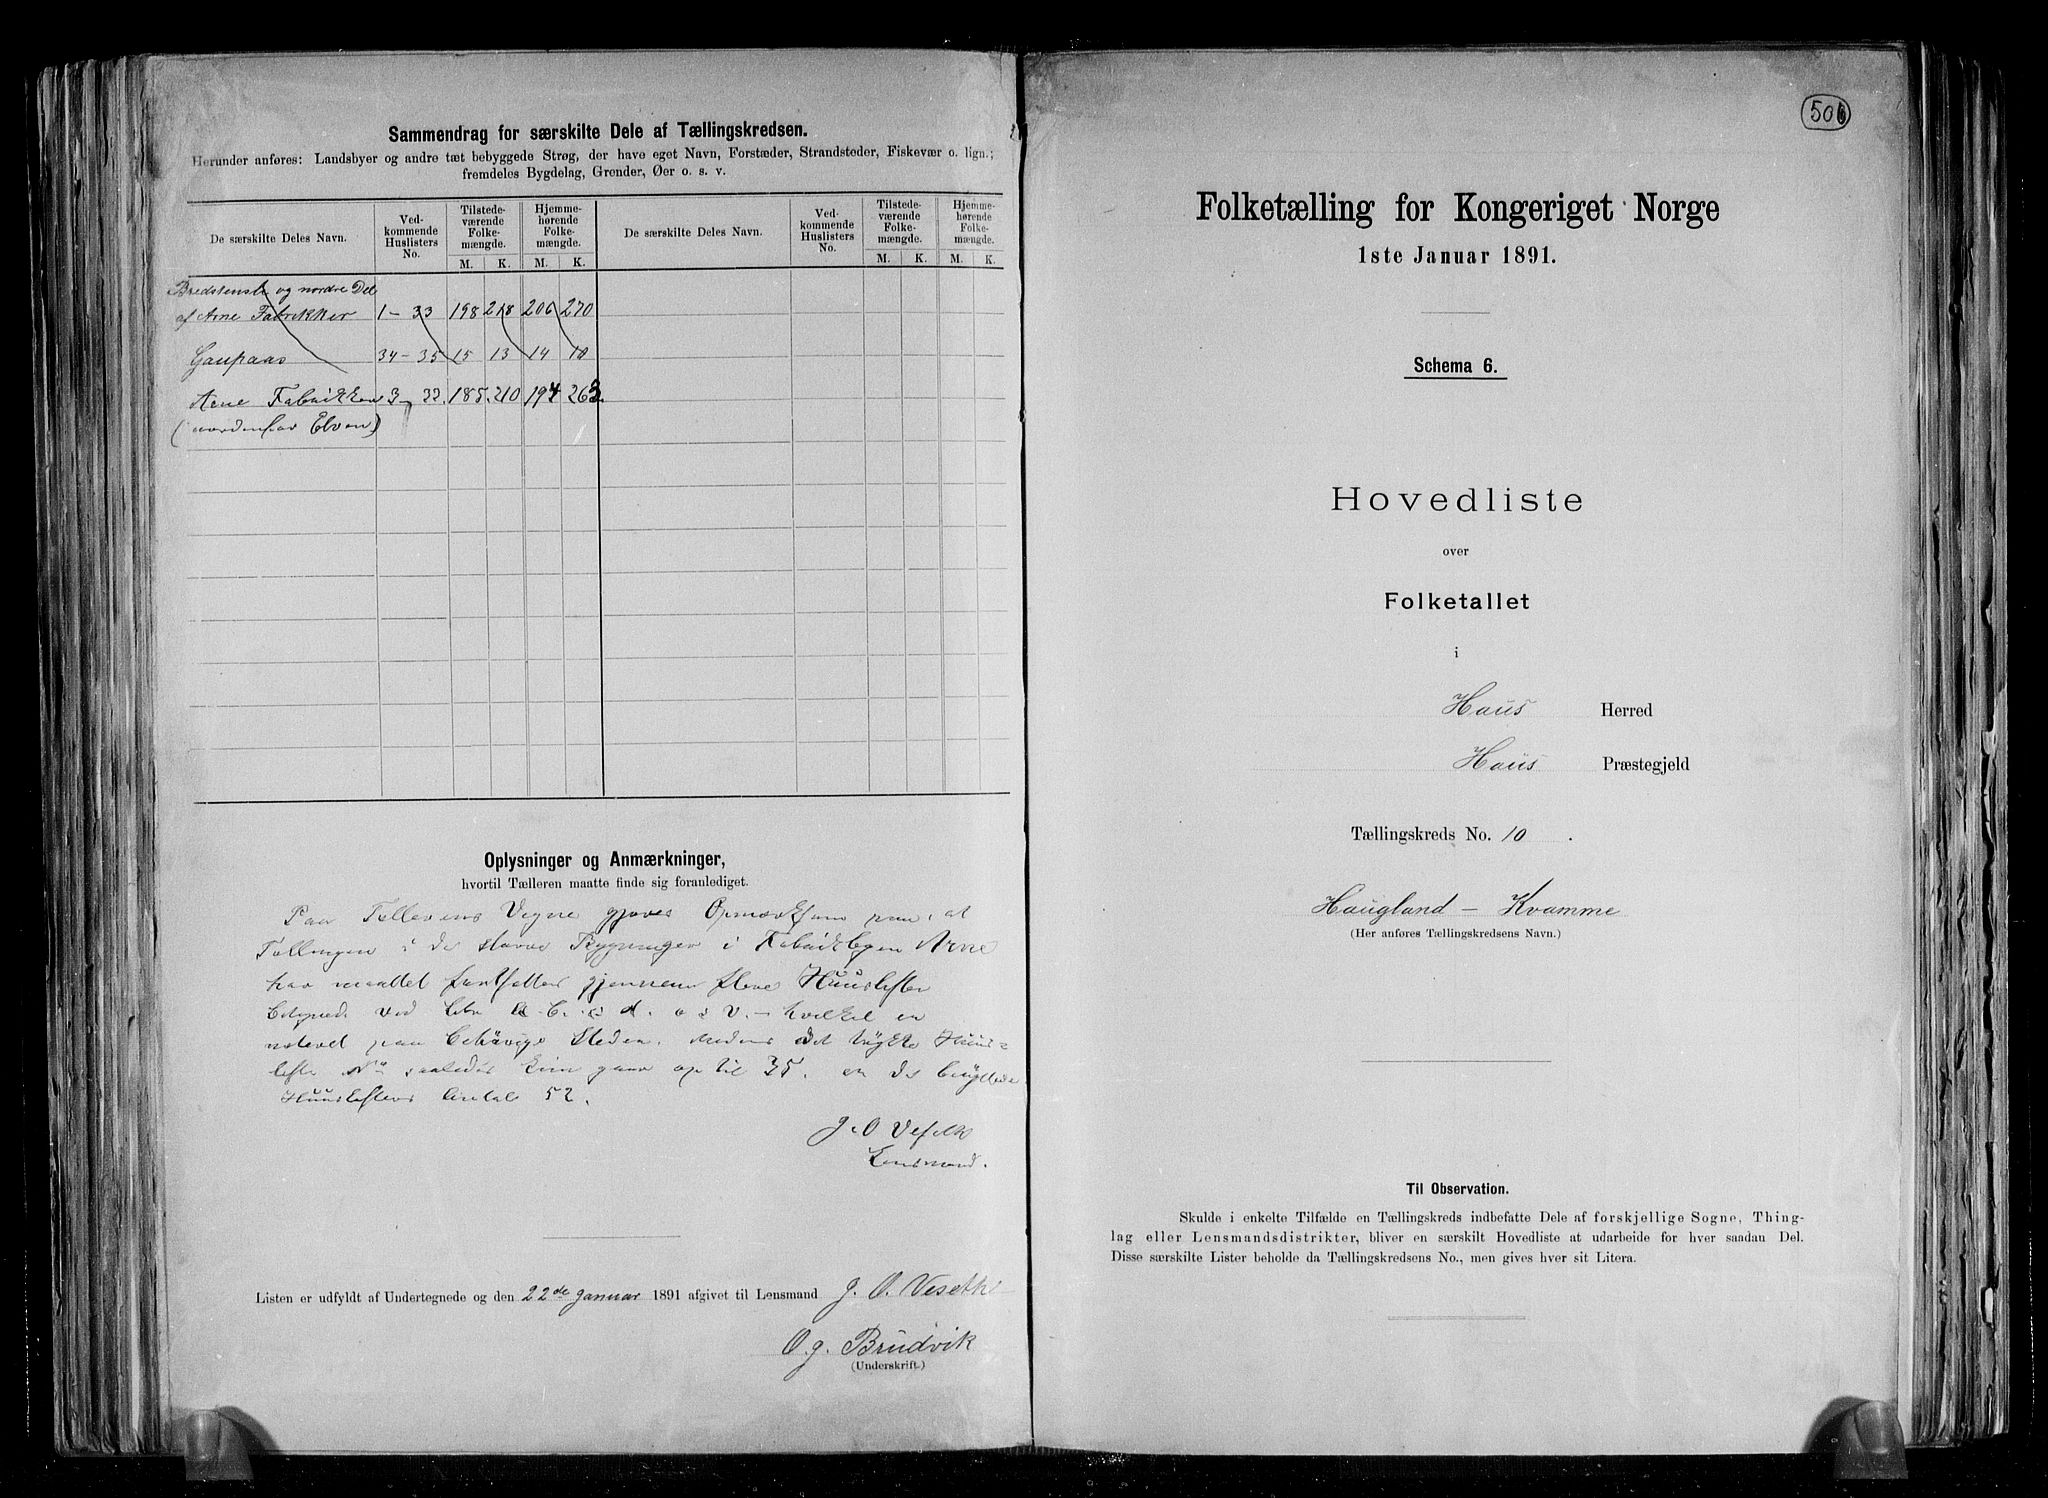 Sammendrag for særskilte Dele af Tællingskredsen.
Herunder anføres: Landsbyer og andre tæt bebyggede Strøg, der have eget Navn, Forstæder, Strandsteder, Fiskevær o. lign.;
fremdeles Bygdelag, Grender, Øer o. s. v.
De særskilte Deles Navn. Ved-kommende Huslisters No. Tilstede-værende Folke-mængde. M. K. Hjemme-hørende Folke-mængde. M. K. De særskilte Deles Navn. Ved-kommende Huslisters No. Tilstede-værende Folke-mængde. M. K. Hjemme-hørende Folke-mængde. M. K.
Bredstensli og nordre Del
af Arne Fabrikker 1 - 33 198 218 206 270
Gaupaas 34 - 35 15 13 14 10
Arne Fabrikken 3 - 22. 185. 210 194 263.
(nordenfor Elven)
Oplysninger og Anmærkninger,
hvortil Tælleren maatte finde sig foranlediget.
Paa Tellerens Vegne gjøres Opmærksom paa, at
Tællingen i de større Bygninger i Fabrikbyen Arne
har maattet fortsættes gjennem flere Huuslister
betegnede ved Litr a. b. c. d. o s v. - hvilket er
noteret paa behørige Steder. Medens det brugte Huus-
liste No saaledes kun gaar op til 35. er de benyttede
Huuslisters Antal 52.
J. O Veseth
Lensmand.
Listen er udfyldt af Undertegnede og den 22de Januar 1891 afgivet til Lensmand J. O. Veseth
O. J. Brudvik
(Underskrift.)
506
Folketælling for Kongeriget Norge
1ste Januar 1891.
Schema 6.
Hovedliste
over
Folketallet
i
Haus Herred
Haus Præstegjeld
Tællingskreds No. 10.
Haugland - Kvamme
(Her anføres Tællingskredsens Navn.)
Til Observation.
Skulde i enkelte Tilfælde en Tællingskreds indbefatte Dele af forskjellige Sogne, Thing-
lag eller Lensmandsdistrikter, bliver en særskilt Hovedliste at udarbeide for hver saadan Del.
Disse særskilte Lister beholde da Tællingskredsens No., men gives hver sit Litera.